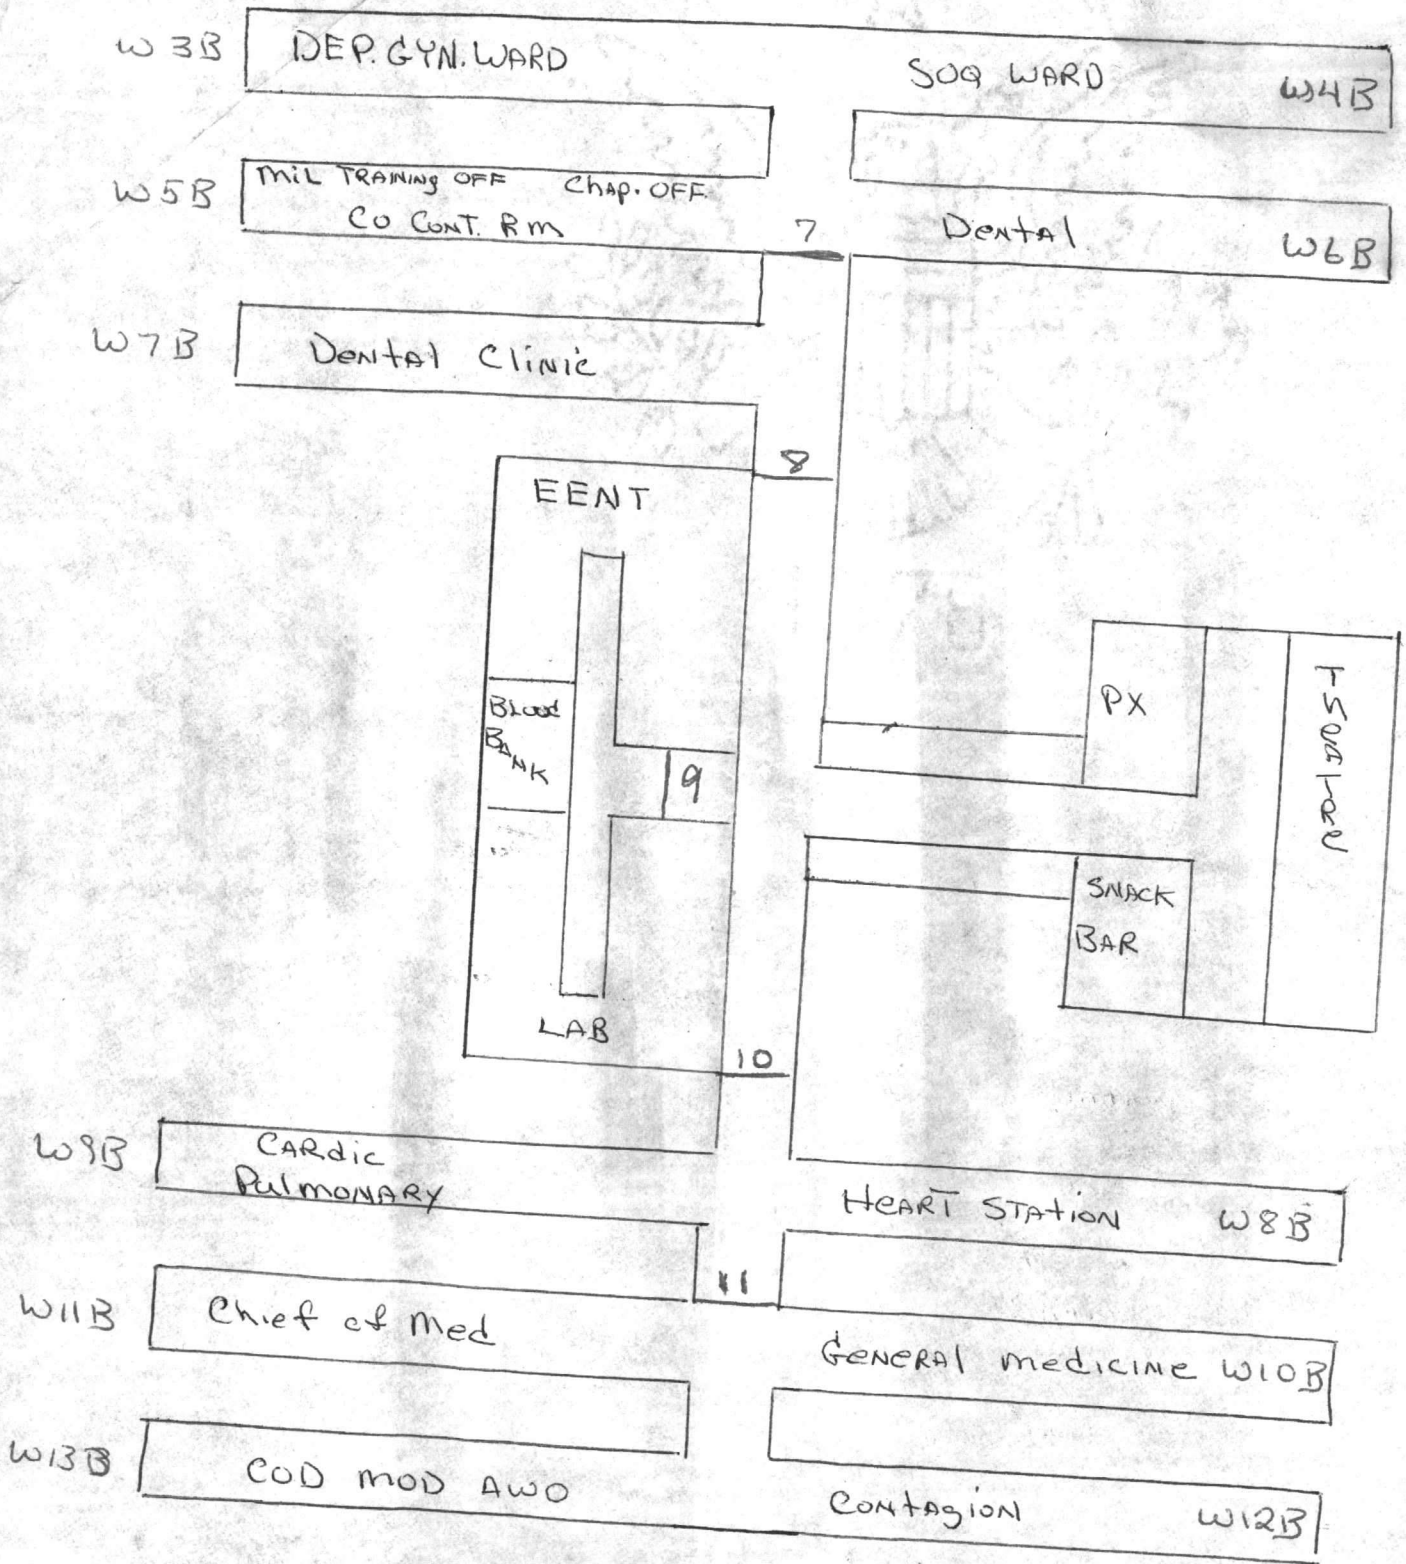 W3B DEP. GYN. WARD SOQ WARD W4B
W5B MIL TRAINING OFF CHAP. OFF.
CO CONT. RM
7
Dental W6B
W7B Dental Clinic
8
EENT
BLOOD
BANK
9
PX
SNACK
BAR
LAB
10
W9B CARDIC
PULMONARY
HEART STATION W8B
11
W11B Chief of Med
GENERAL MEDICINE W10B
W13B COD MOD AWO
CONTAGION W12B